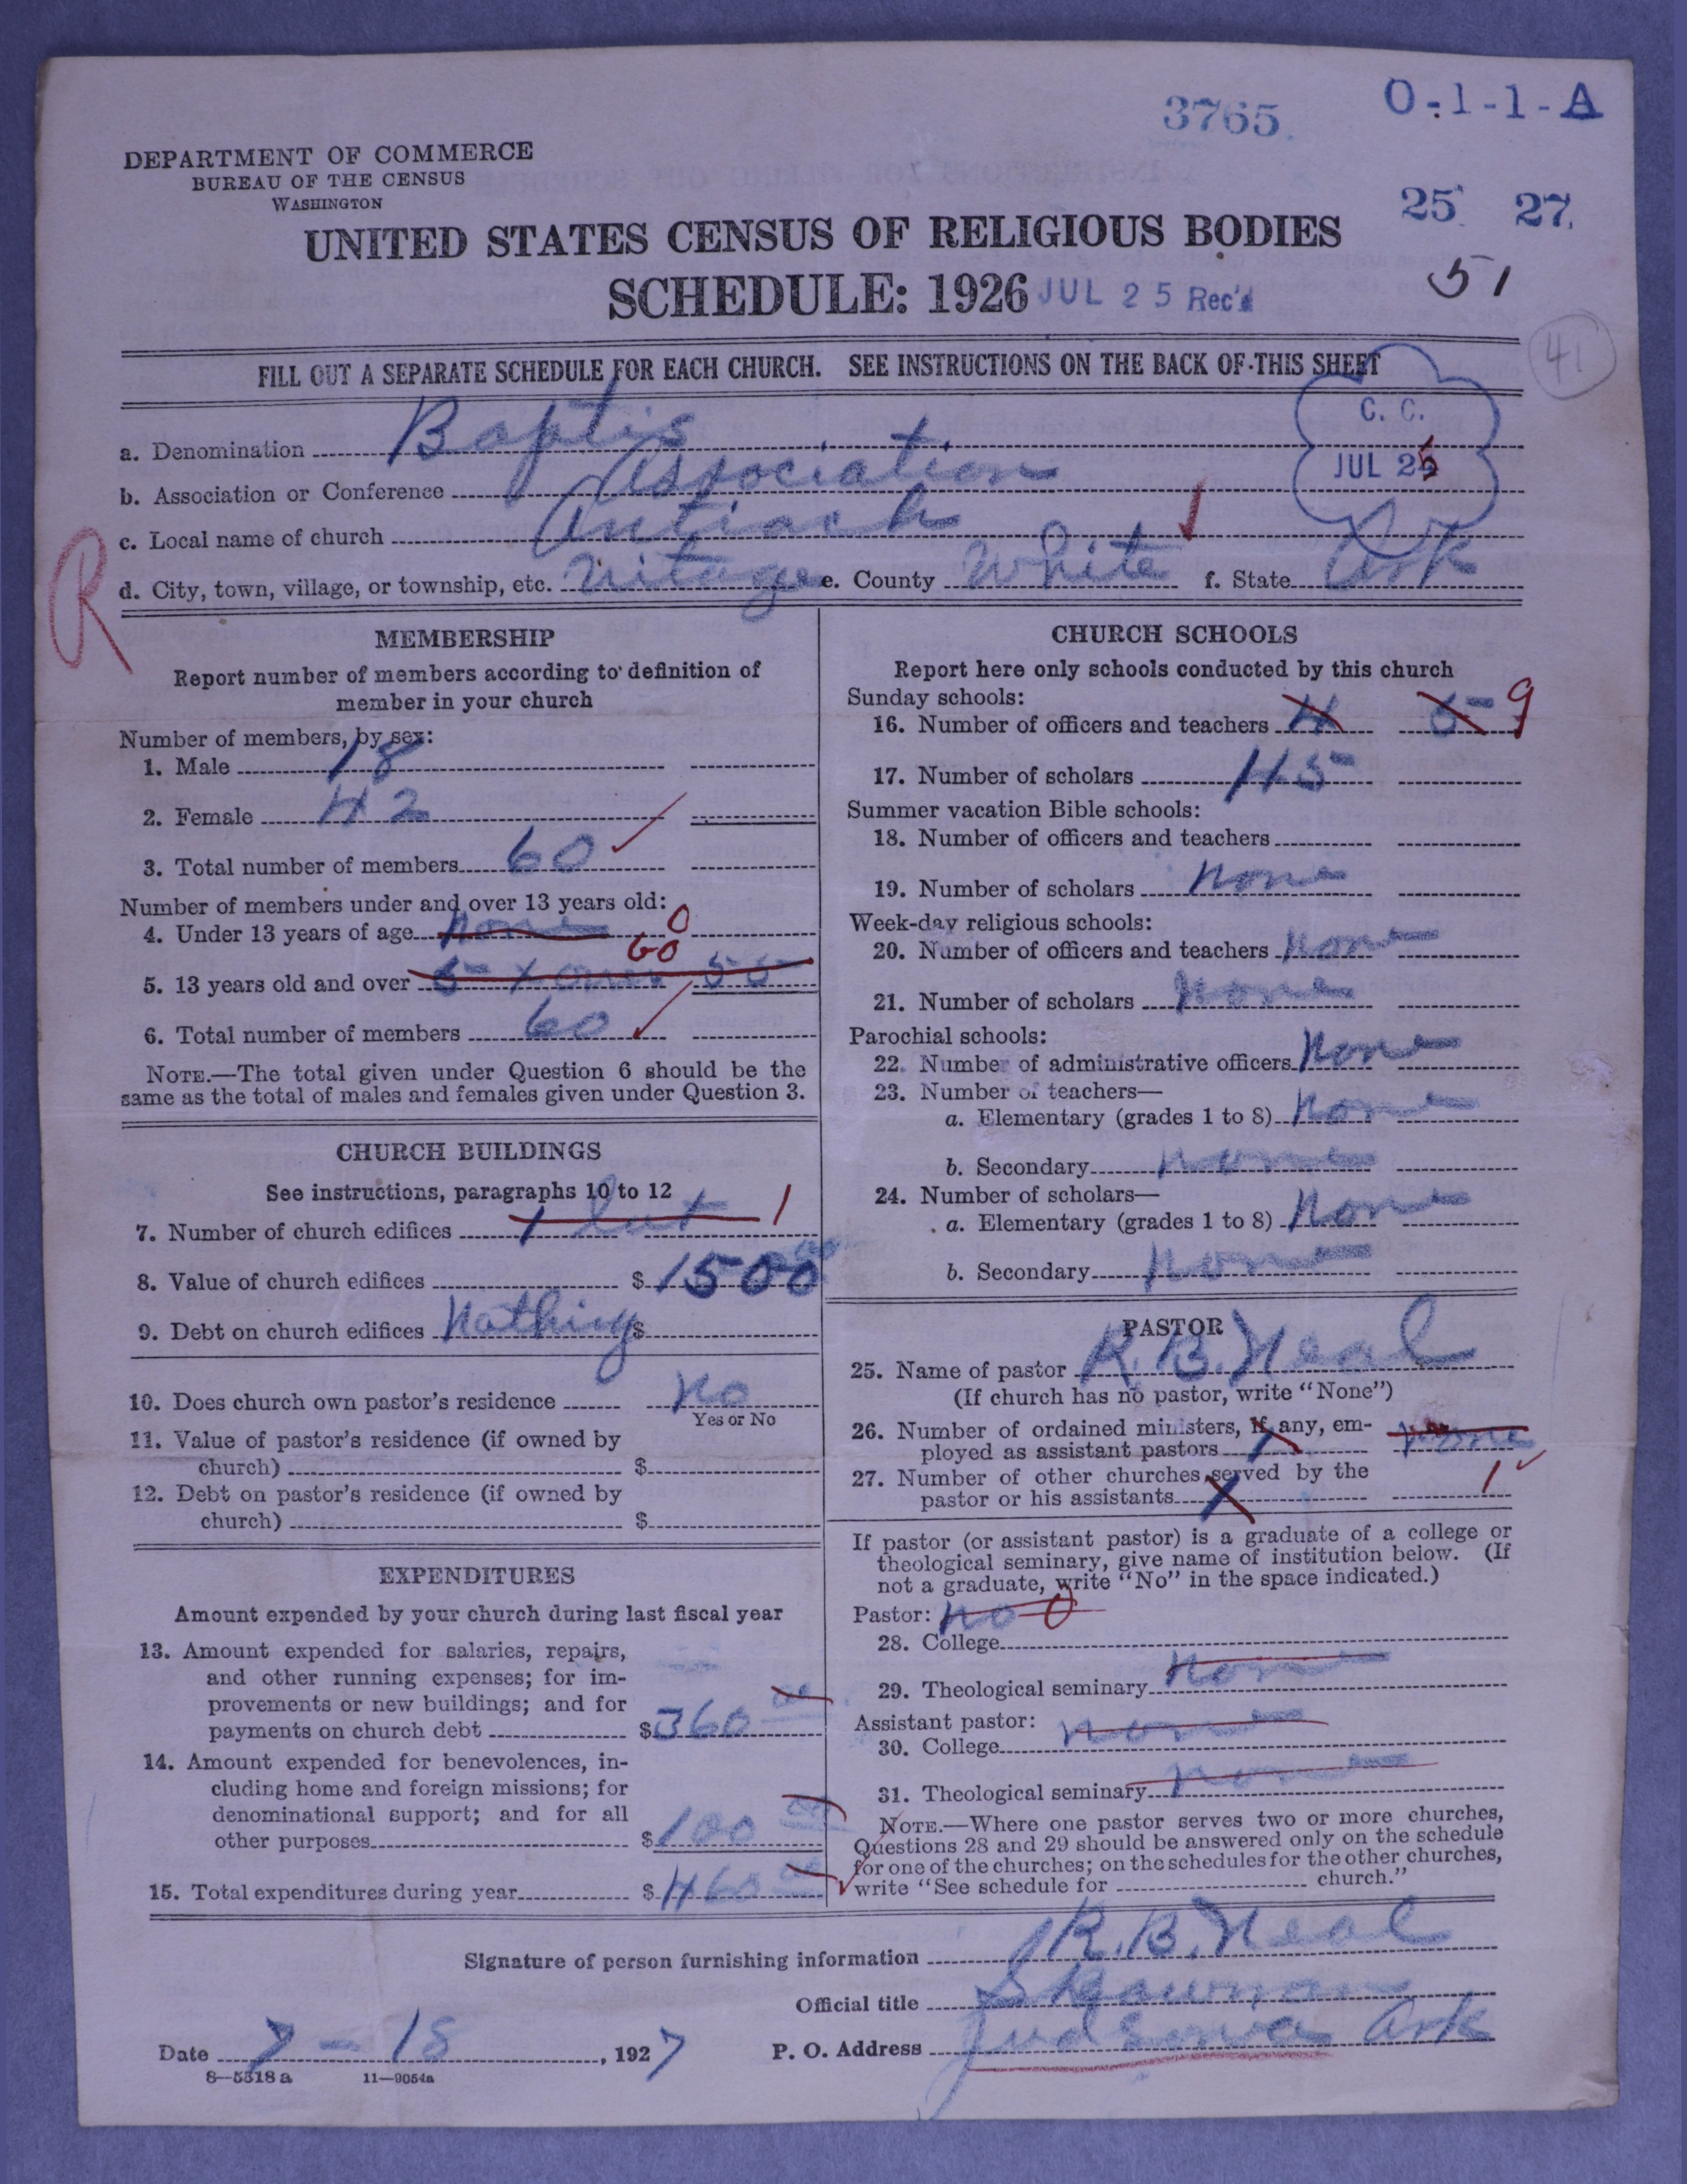 3765.
O-1-1-A
DEPARTMENT OF COMMERCE
BUREAU OF THE CENSUS
WASHINGTON
25 27.
UNITED STATES CENSUS OF RELIGIOUS BODIES
51
SCHEDULE: 1926 JUL 25 Rec'd
41
FILL OUT A SEPARATE SCHEDULE FOR EACH CHURCH. SEE INSTRUCTIONS ON THE BACK OF THIS SHEET
C. C.
JUL 25
a. Denomination Baptis
b. Association or Conference Association
c. Local name of church Antiach
R
d. City, town, village, or township, etc. e. County White f. State Ark
MEMBERSHIP
Report number of members according to definition of
member in your church
Number of members, by sex:
1. Male 18
2. Female 42
3. Total number of members 60
Number of members under and over 13 years old:
4. Under 13 years of age none 0
60
5. 13 years old and over
6. Total number of members 60
NOTE.—The total given under Question 6 should be the
same as the total of males and females given under Question 3.
CHURCH BUILDINGS
See instructions, paragraphs 10 to 12
7. Number of church edifices 1 1
8. Value of church edifices $ 1500 00
9. Debt on church edifices Nothing $
10. Does church own pastor's residence No
Yes or No
11. Value of pastor's residence (if owned by
church) $
12. Debt on pastor's residence (if owned by
church) $
EXPENDITURES
Amount expended by your church during last fiscal year
13. Amount expended for salaries, repairs,
and other running expenses; for im-
provements or new buildings; and for
payments on church debt $ 360 00
14. Amount expended for benevolences, in-
cluding home and foreign missions; for
denominational support; and for all
other purposes $ 100 00
15. Total expenditures during year $ 460 00
CHURCH SCHOOLS
Report here only schools conducted by this church
Sunday schools:
16. Number of officers and teachers 4 5 9
17. Number of scholars 45
Summer vacation Bible schools:
18. Number of officers and teachers
19. Number of scholars none
Week-day religious schools:
20. Number of officers and teachers none
21. Number of scholars none
Parochial schools:
22. Number of administrative officers none
23. Number of teachers—
a. Elementary (grades 1 to 8) none
b. Secondary none
24. Number of scholars—
a. Elementary (grades 1 to 8) none
b. Secondary none
PASTOR
25. Name of pastor R. B. Neal
(If church has no pastor, write "None")
26. Number of ordained ministers, if any, em-
ployed as assistant pastors none
27. Number of other churches served by the
pastor or his assistants 1
If pastor (or assistant pastor) is a graduate of a college or
theological seminary, give name of institution below. (If
not a graduate, write "No" in the space indicated.)
Pastor: no 0
28. College
29. Theological seminary none
Assistant pastor: none
30. College
31. Theological seminary none
NOTE.—Where one pastor serves two or more churches,
Questions 28 and 29 should be answered only on the schedule
for one of the churches; on the schedules for the other churches,
write "See schedule for church."
Signature of person furnishing information R. B. Neal
Official title
Date 7 - 18, 1927 P. O. Address Judsonia Ark
8—5318 a 11—9054a